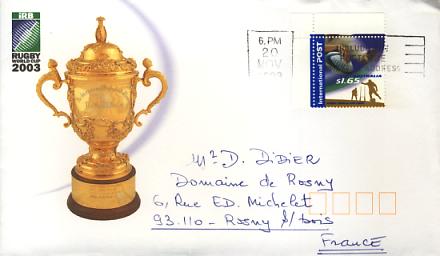 iRB
RUGBY
WORLD CUP
2003
6. PM
20
NOV
2003
INCLUDE
ADDRESS
International POST
AUSTRALIA
$1.65
Mr D. DiDiER
Domaine de Rosny
6, Rue ED. Michelet
93.110 - Rosny s/bois
FRANCE